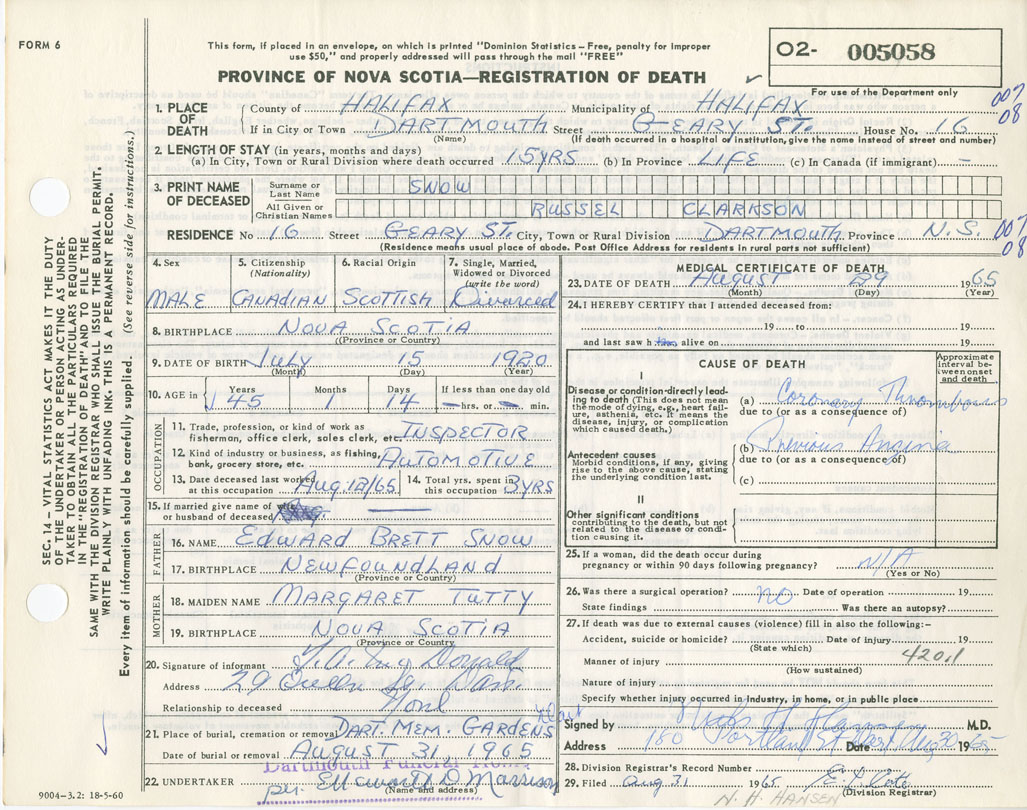 FORM 6
This form, if placed in an envelope, on which is printed "Dominion Statistics — Free, penalty for improper
use $50," and properly addressed will pass through the mail "FREE"
PROVINCE OF NOVA SCOTIA—REGISTRATION OF DEATH
02- 005058
For use of the Department only
007
08
1. PLACE OF DEATH
County of HALIFAX Municipality of HALIFAX
If in City or Town DARTMOUTH Street GEARY ST. House No. 16
(Name) (If death occurred in a hospital or institution, give the name instead of street and number)
2. LENGTH OF STAY (in years, months and days)
(a) In City, Town or Rural Division where death occurred 15 YRS (b) In Province LIFE (c) In Canada (if immigrant) -
3. PRINT NAME OF DECEASED
Surname or Last Name SNOW
All Given or Christian Names RUSSEL CLARKSON
RESIDENCE No 16 Street GEARY ST. City, Town or Rural Division DARTMOUTH Province N.S.
007
08
(Residence means usual place of abode. Post Office Address for residents in rural parts not sufficient)
4. Sex MALE
5. Citizenship (Nationality) CANADIAN
6. Racial Origin SCOTTISH
7. Single, Married, Widowed or Divorced (write the word) Divorced
8. BIRTHPLACE NOVA SCOTIA
(Province or Country)
9. DATE OF BIRTH July 15 1920
(Month) (Day) (Year)
10. AGE in Years 45 Months 1 Days 14 If less than one day old — hrs. or — min.
OCCUPATION
11. Trade, profession, or kind of work as fisherman, office clerk, sales clerk, etc. INSPECTOR
12. Kind of industry or business, as fishing, bank, grocery store, etc. AUTOMOTIVE
13. Date deceased last worked at this occupation Aug. 12/65
14. Total yrs. spent in this occupation 3 YRS
15. If married give name of wife or husband of deceased
FATHER
16. NAME EDWARD BRETT SNOW
17. BIRTHPLACE NEWFOUNDLAND
(Province or Country)
MOTHER
18. MAIDEN NAME MARGARET TUTTY
19. BIRTHPLACE NOVA SCOTIA
(Province or Country)
20. Signature of informant
Address 29 Queen St. Dart.
Relationship to deceased
21. Place of burial, cremation or removal DART. MEM. GARDENS
Date of burial or removal AUGUST 31, 1965
Dartmouth Funeral Home
22. UNDERTAKER per.
(Name and address)
MEDICAL CERTIFICATE OF DEATH
23. DATE OF DEATH August 29 1965
(Month) (Day) (Year)
24. I HEREBY CERTIFY that I attended deceased from:
19 to 19
and last saw alive on 19
CAUSE OF DEATH
Approximate interval between onset and death
I
Disease or condition directly leading to death (This does not mean the mode of dying, e.g., heart failure, asthenia, etc. It means the disease, injury, or complication which caused death.)
(a) Coronary Thrombosis
due to (or as a consequence of)
Antecedent causes
Morbid conditions, if any, giving rise to the above cause, stating the underlying condition last.
(b) Previous Angina
due to (or as a consequence of)
(c)
II
Other significant conditions contributing to the death, but not related to the disease or condition causing it.
25. If a woman, did the death occur during pregnancy or within 90 days following pregnancy? N/A
(Yes or No)
26. Was there a surgical operation? NO Date of operation 19
State findings Was there an autopsy?
27. If death was due to external causes (violence) fill in also the following:—
Accident, suicide or homicide? Date of injury 19
(State which)
420.1
Manner of injury
(How sustained)
Nature of injury
Specify whether injury occurred in industry, in home, or in public place
Signed by M.D.
Address 180 Portland St Dart Date Aug 30 1965
28. Division Registrar's Record Number
29. Filed Aug 31 1965
(Division Registrar)
N. H. HANSEN
SEC. 14 — VITAL STATISTICS ACT MAKES IT THE DUTY
OF THE UNDERTAKER OR PERSON ACTING AS UNDER-
TAKER TO OBTAIN ALL THE PARTICULARS REQUIRED
IN THE "REGISTRATION OF DEATH" AND TO FILE THE
SAME WITH THE DIVISION REGISTRAR WHO SHALL ISSUE THE BURIAL PERMIT.
WRITE PLAINLY WITH UNFADING INK. THIS IS A PERMANENT RECORD.
Every item of information should be carefully supplied. (See reverse side for instructions.)
9004-3.2: 18-5-60